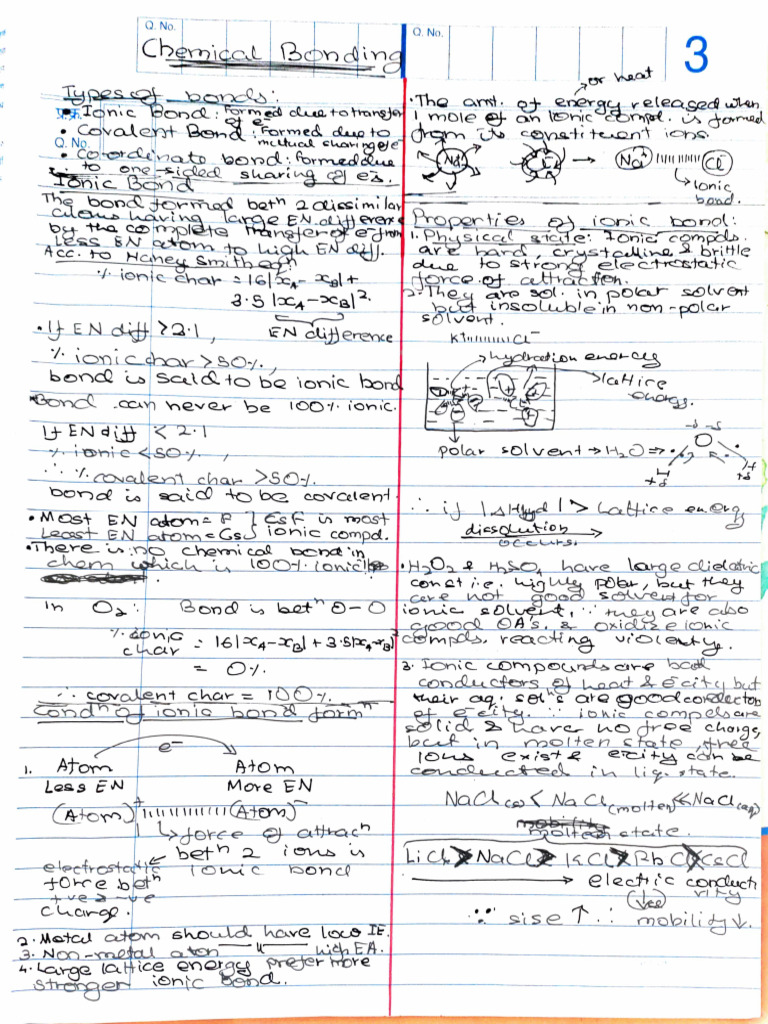 Q. No.
Chemical Bonding
Types of bonds:
• Ionic Bond: Formed due to transfer
of e⁻
• Covalent Bond: Formed due to
mutual sharing e⁻
Q. No.
• Co-ordinate bond: formed due
to one-sided sharing of e⁻s.
Ionic Bond
The bond formed betⁿ 2 dissimilar
atoms having large EN difference
by the complete transfer of e⁻ from
less EN atom to high EN diff.
Acc. to Haney Smith eqⁿ
% ionic char = 16|xA - xB| +
3.5|xA-xB|².
EN difference
• If EN diff > 2.1,
% ionic char > 50%,
bond is said to be ionic bond
*Bond can never be 100% ionic.
If EN diff < 2.1
% ionic < 50%,
∴ % covalent char > 50%.
bond is said to be covalent.
• Most EN atom = F } CsF is most
Least EN atom = Cs } ionic compd.
• There is no chemical bond in
chem which is 100% ionic
In O₂: Bond is betⁿ O-O
% ionic
char = 16|xA-xB| + 3.5|xA-xB|²
= 0%.
∴ covalent char = 100%.
Condⁿ of ionic bond formⁿ
e⁻
1. Atom Atom
Less EN More EN
(Atom)⁺ (Atom)⁻
↳ force of attracⁿ
betⁿ 2 ions is
ionic bond
electrostatic
force betⁿ
+ve & -ve
charge.
2. Metal atom should have low IE.
3. Non-metal atom —— " —— high EA.
4. Large lattice energy prefer more
stronger ionic bond.
Q. No.
3
or heat
• The amt. of energy released when
1 mole of an Ionic compd. is formed
from its constituent ions.
Na⁺ → Na⁺ Cl⁻
↳ Ionic
bond.
Properties of ionic bond:
1. Physical state: Ionic compds.
are hard, crystalline & brittle
due to strong electrostatic
force of attraction.
2. They are sol. in polar solvent
but insoluble in non-polar
solvent.
K⁺ Cl⁻
→ hydration energy
→ lattice
energy.
polar solvent → H₂O ⇒
O
∴ if |ΔHhyd| > Lattice energy
dissolution
occurs.
• H₂O₂ & H₂SO₄ have large dielectric
const i.e. highly polar, but they
are not good solvent for
ionic solvent, ∵ they are also
good OA's. & oxidize ionic
compds, reacting violently.
3. Ionic compounds are bad
conductors of heat & e'city but
their aq. solⁿs are good conductor
of e'city. ∵ ionic compds are
solid & have no free charge,
but in molten state, free
ions exist & e'city can be
conducted in liq. state.
NaCl(s) < NaCl(molten) << NaCl(aq)
molten state.
LiCl > NaCl > KCl > RbCl > CsCl
→ electric conducti
vity
∵ sise ↑ ∴ mobility ↓.